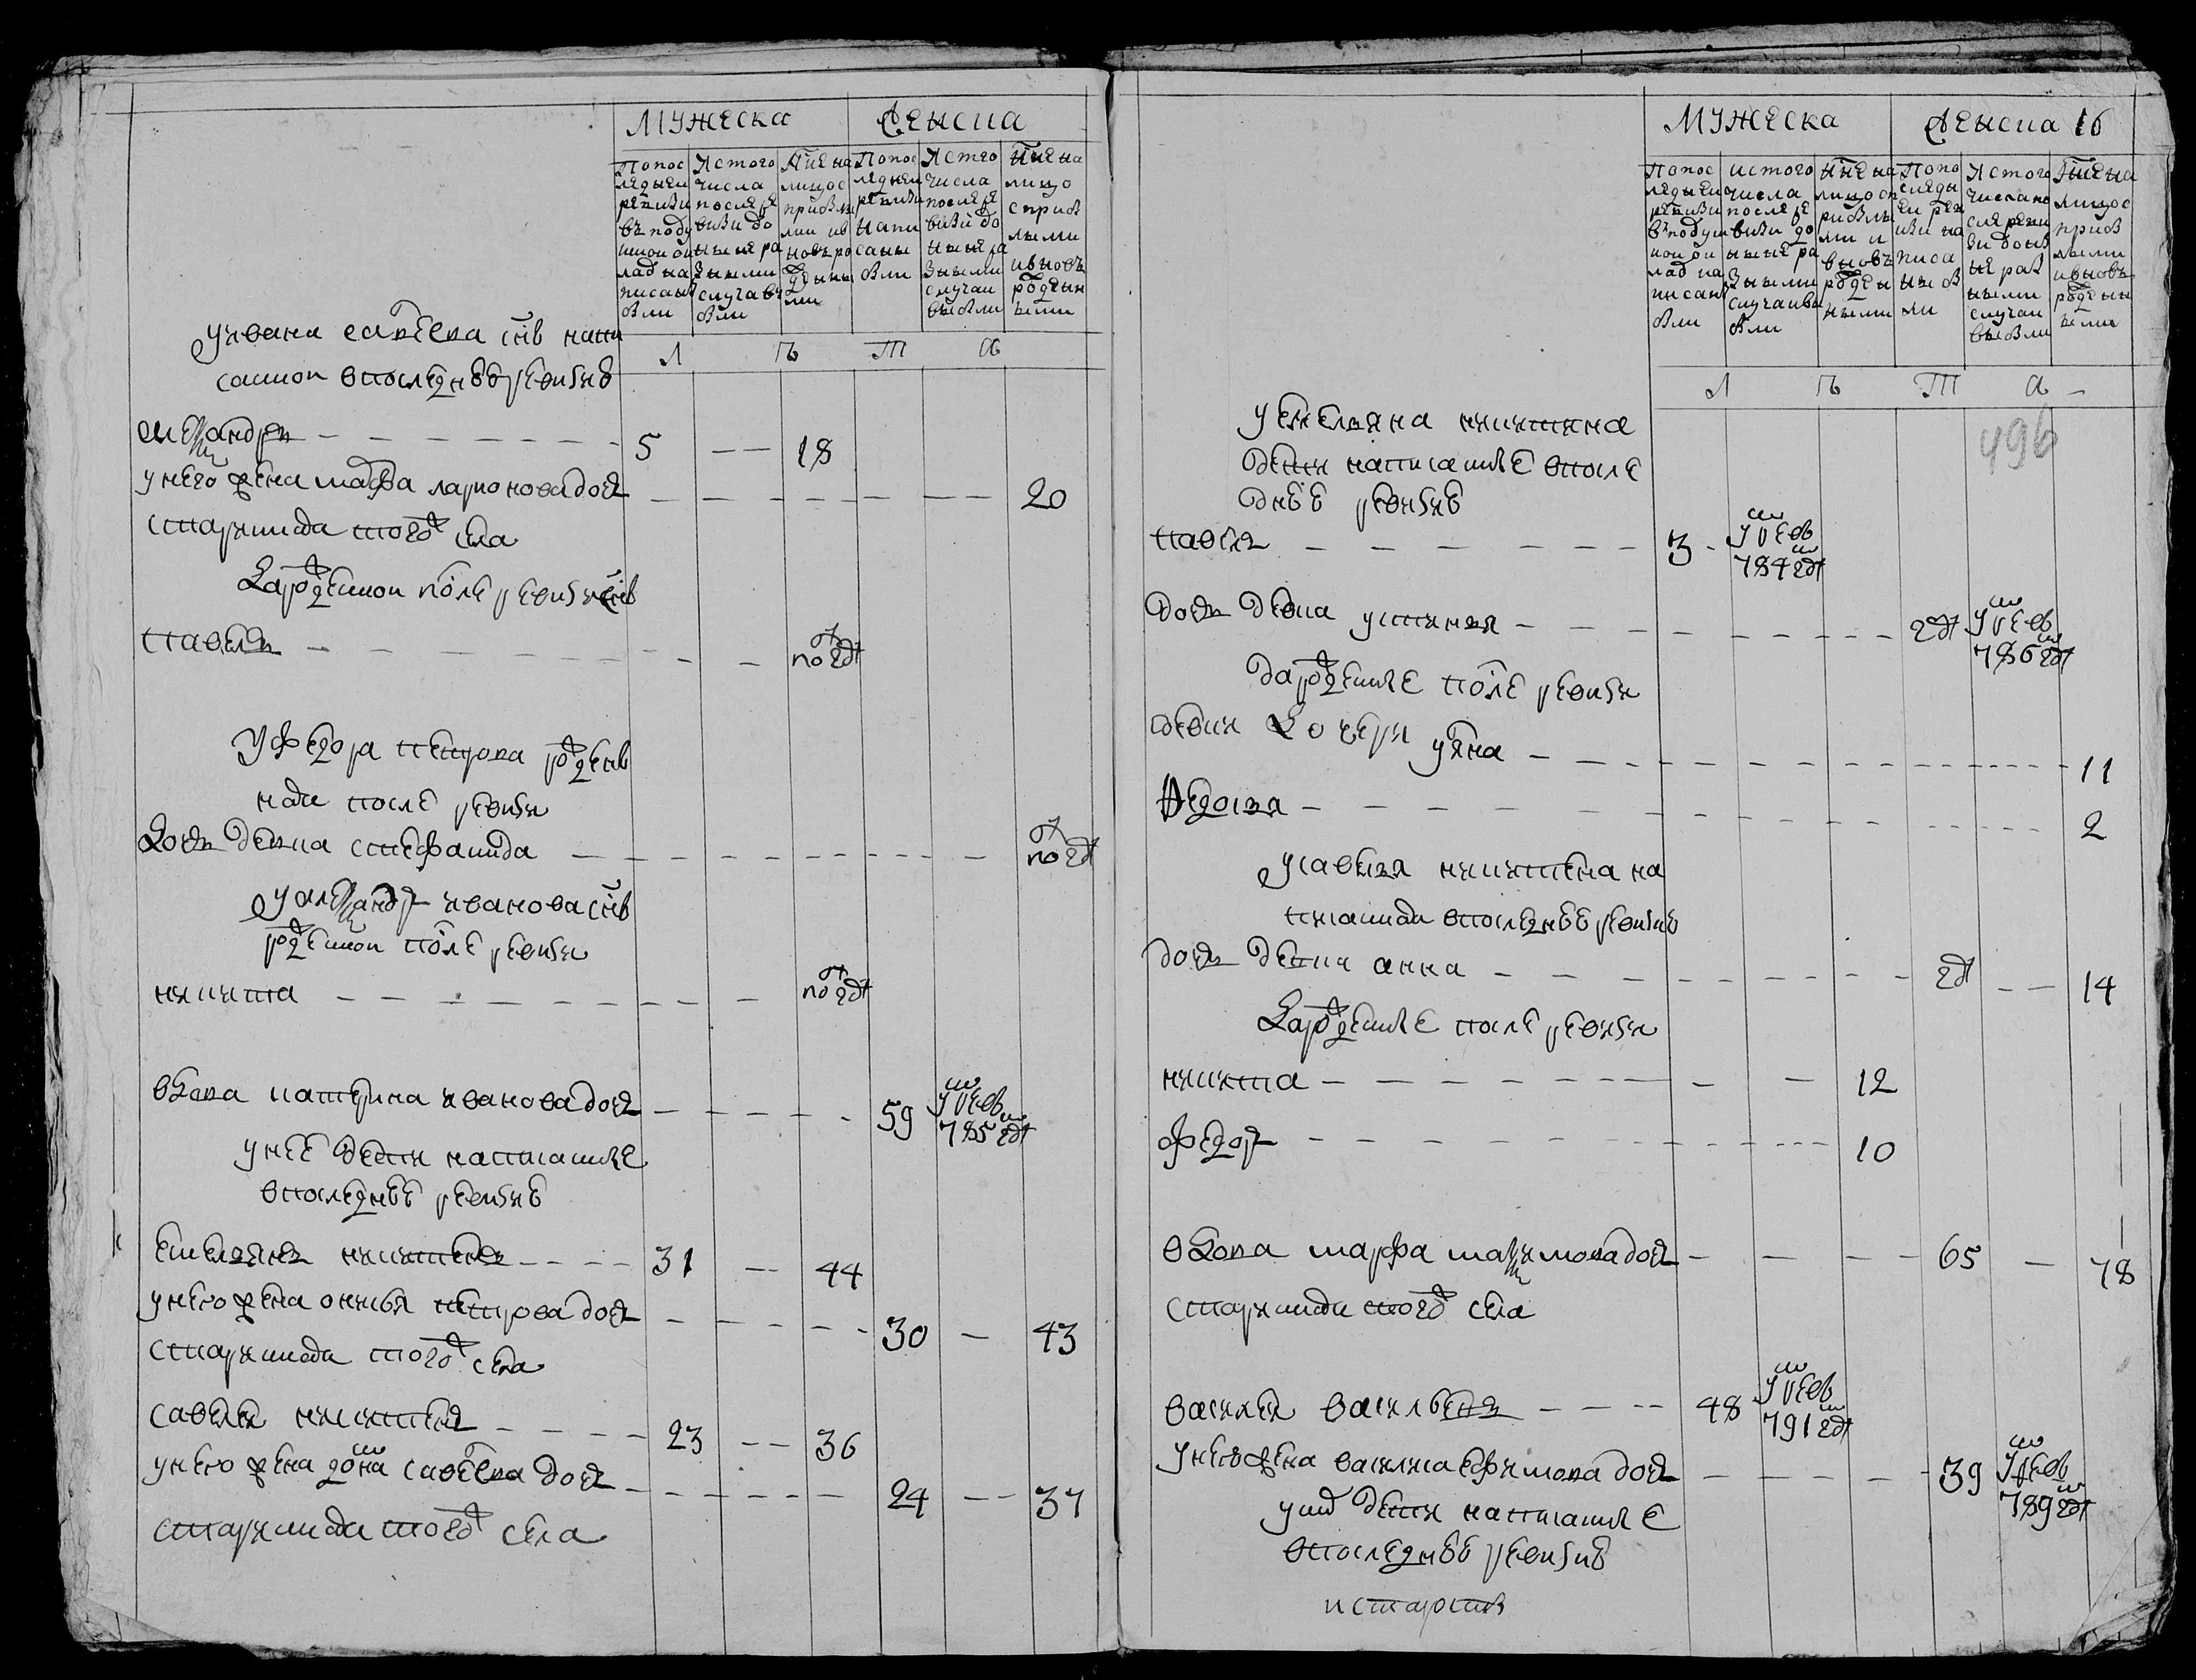 Мужеска
Женска
Попос
ледней
ревизи
въ поду
шной ок
лад на
писаны
были
Из того
числа
после ре
визи до
ныне ра
зными
случаями
были
Ныне на
лицо с
прибылы
ми и в
новь ро
жденны
ми
Попос
ледней
ревизи
напи
саны
были
Из того
числа
после ре
визи до
ныне ра
зными
случаи
выбыли
Ныне на
лицо
с приб
лыми
и вновь
рожден
ными
Л ѣ т а
у ивана савельева снъ напи
санной в последнеѣ ревизиѣ
александръ 5 18
у него жена марфа ларионова дочь 20
старинная тогож села
зарожденной после ревизи снъ
павелъ полгода
у федора петрова рожден
ная после ревизи
дочь девка степанида полгода
у александра иванова снъ
рожденной после ревизи
никита полгода
вдова катерина иванова дочь 59 умре в 785 году
у неѣ дети написанные
в последнеѣ ревизиѣ
емельянъ никитинъ 31 44
у него жена офимья петрова дочь 30 43
старинная тогож села
савелей никитинъ 23 36
у него жена домна савельева дочь 24 37
старинная тогож села
Мужеска
Женска 16
Попос
ледней
ревизи
в подуш
ной ок
лад на
писаны
были
из того
числа
после ре
визи до
ныне ра
зными
случаи вы
были
Ныне на
лицо сп
рибылы
ми и
вновь
рожден
ными
Попо
следн
ей рев
изи на
писа
ны бы
ли
Из того
числа по
сле реви
зи до ны
не раз
ными
случаи
выбыли
Ныне на
лицо с
приб
лыми
и вновь
рожден
ными
Л ѣ т а
496
у емельяна никитина
дети написанные в после
днеѣ ревизиѣ
павелъ 3 умре в 784 году
дочь девка устинья году умре в 786 году
зарожденные после ревизи
девки дочери ульяна 11
федосья 2
у савелья никитина на
писанная в последнеѣ ревизиѣ
дочь девка анна году 14
зарожденные после ревизи
никита 12
федоръ 10
вдова марфа максимова дочь 65 78
старинная тогож села
василей васильевъ 48 умре в 791 году
у него жена василиса ефимова дочь 39 умре в 789 году
у них дети написанные
в последнеѣ ревизиѣ